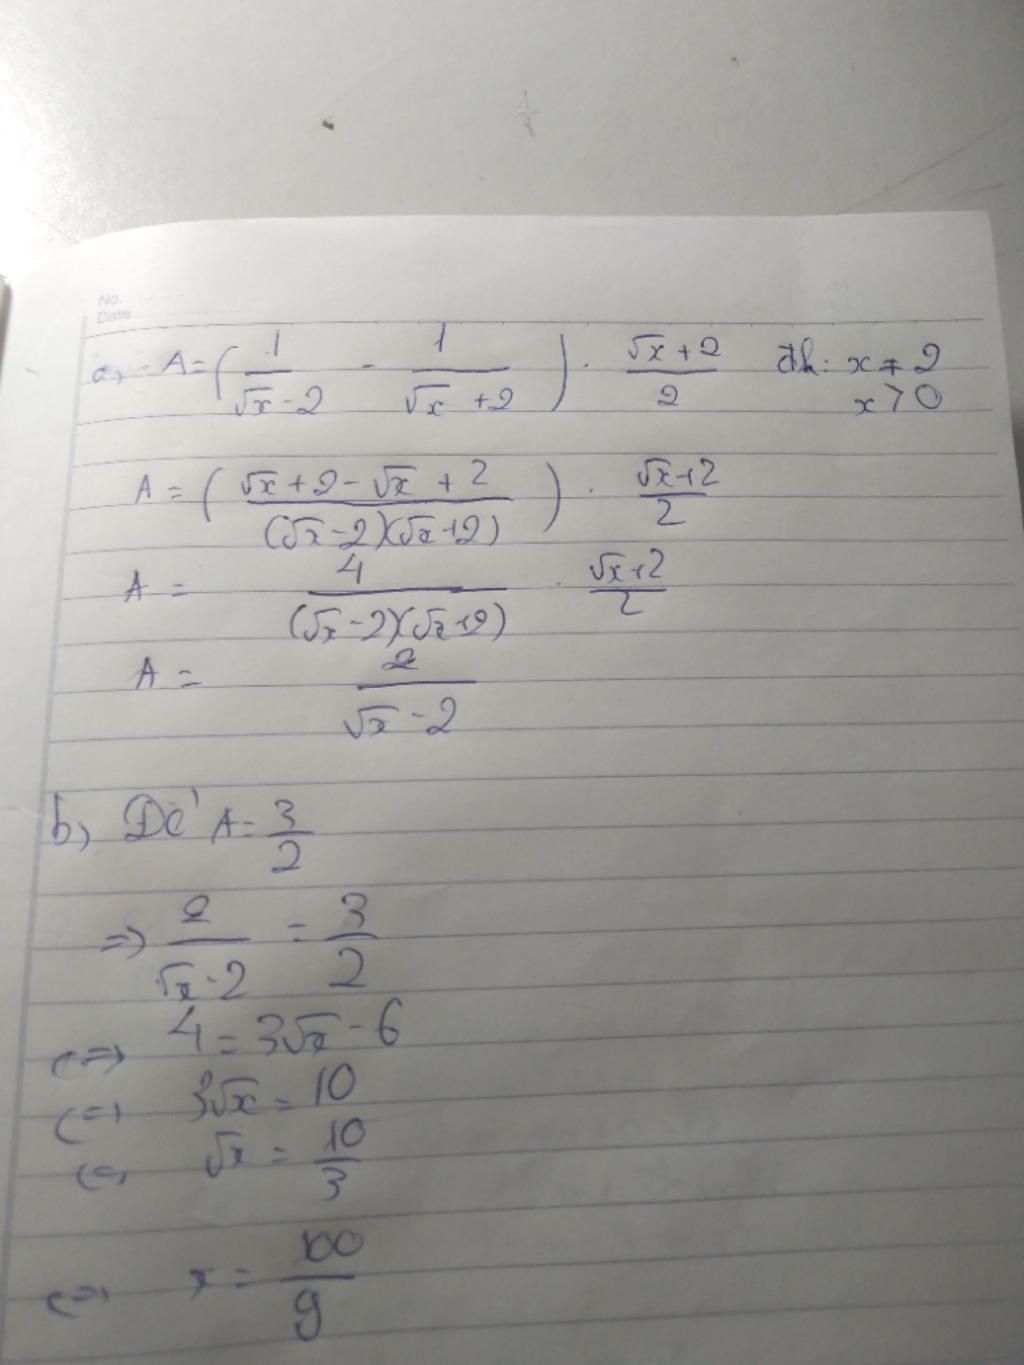 No.
Date
a, A = ( 1/(√x - 2) - 1/(√x + 2) ) . (√x + 2)/2 đk: x ≠ 2
x > 0
A = ( (√x + 2 - √x + 2)/((√x - 2)(√x + 2)) ) . (√x + 2)/2
A = 4/((√x - 2)(√x + 2)) . (√x + 2)/2
A = 2/(√x - 2)
b, Để A = 3/2
=> 2/(√x - 2) = 3/2
<=> 4 = 3√x - 6
<=> 3√x = 10
<=> √x = 10/3
<=> x = 100/9